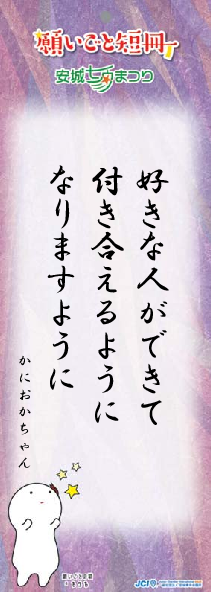 願いごと短冊
安城七夕まつり
好きな人ができて
付き合えるように
なりますように
かにおかちゃん
JCI